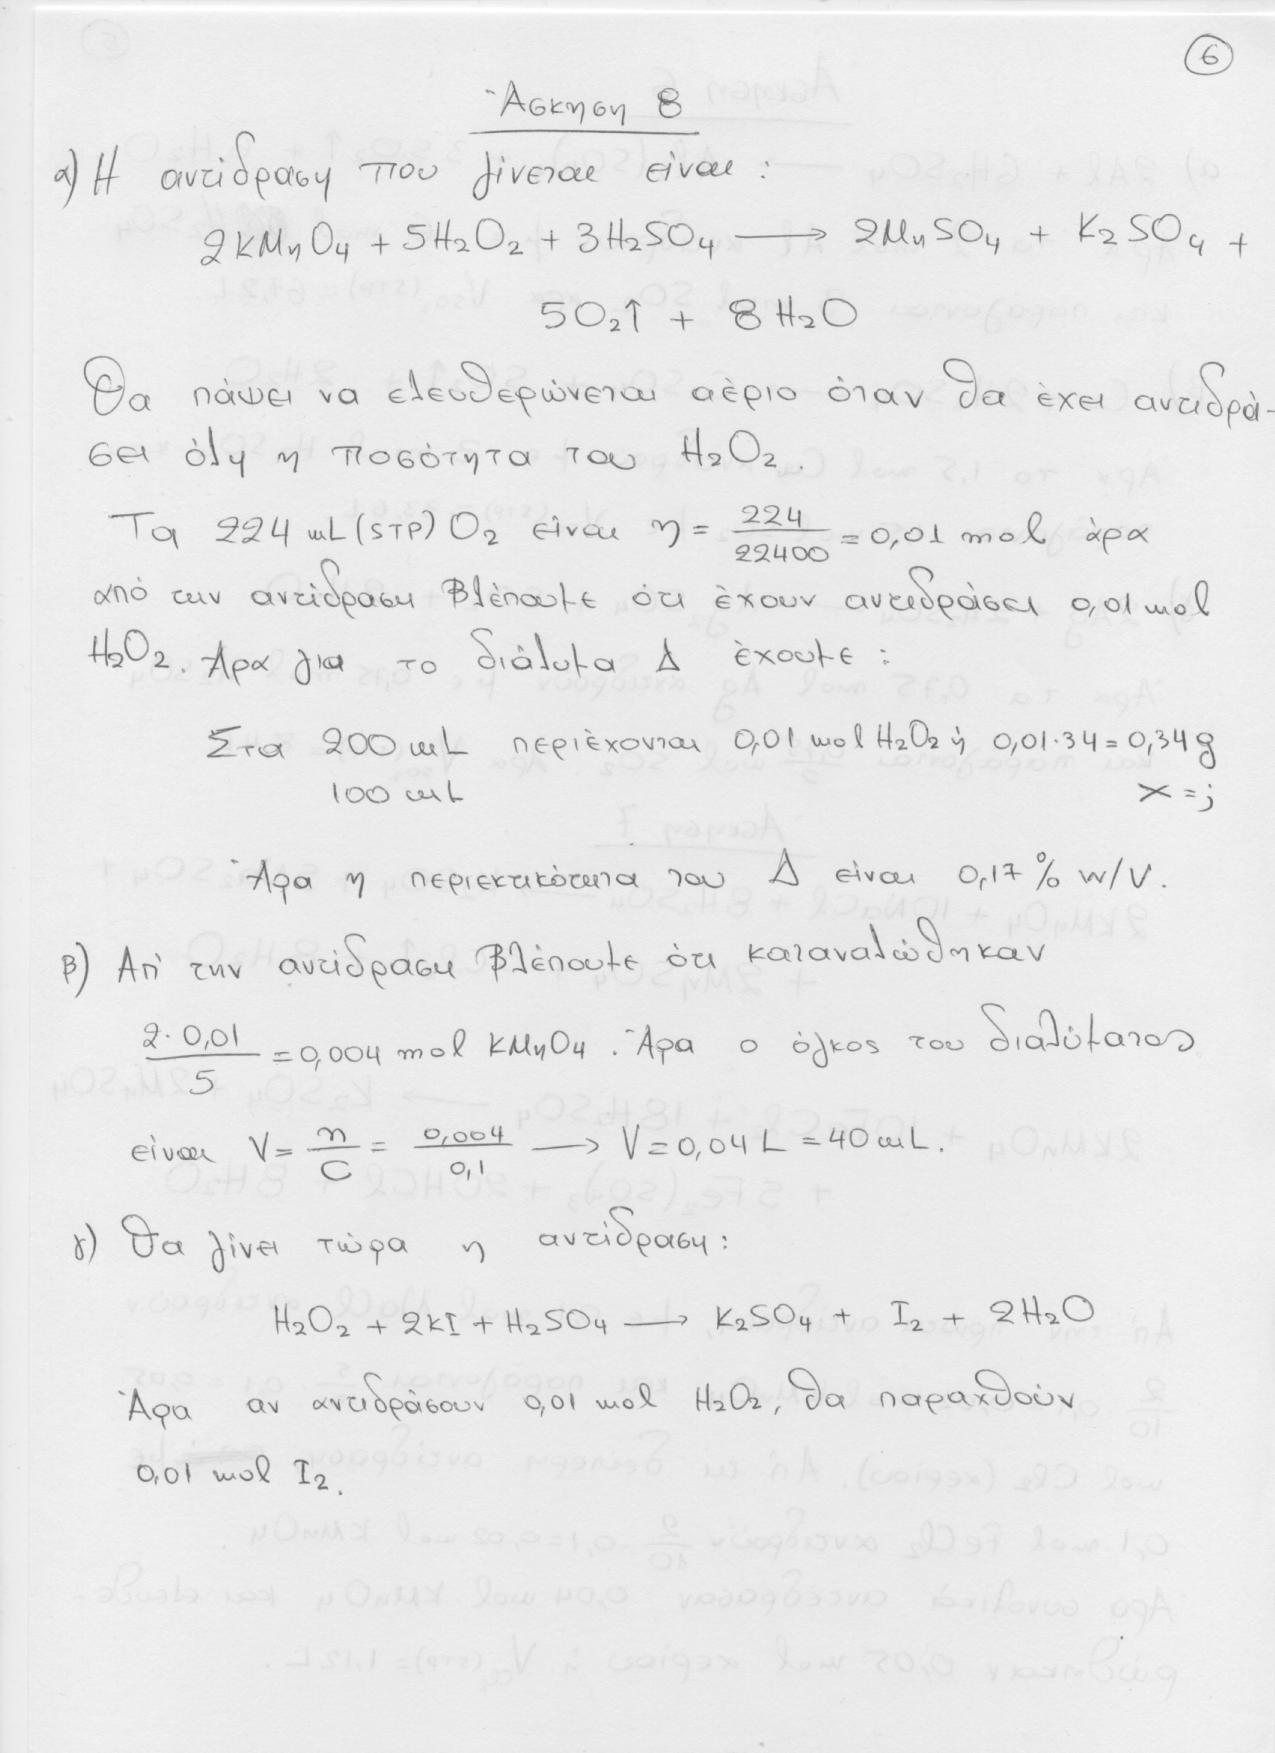 6
Άσκηση 8
α) Η αντίδραση που γίνεται είναι :
2KMnO₄ + 5H₂O₂ + 3H₂SO₄ ⟶ 2MnSO₄ + K₂SO₄ +
5O₂↑ + 8H₂O
Θα πάψει να ελευθερώνεται αέριο όταν θα έχει αντιδρά-
σει όλη η ποσότητα του H₂O₂.
Τα 224 mL (STP) O₂ είναι n = 224/22400 = 0,01 mol άρα
από την αντίδραση βλέπουμε ότι έχουν αντιδράσει 0,01 mol
H₂O₂. Άρα για το διάλυμα Δ έχουμε :
Στα 200 mL περιέχονται 0,01 mol H₂O₂ ή 0,01·34 = 0,34 g
100 mL x = ;
Άρα η περιεκτικότητα του Δ είναι 0,17 % w/V.
β) Απ' την αντίδραση βλέπουμε ότι καταναλώθηκαν
2·0,01/5 = 0,004 mol KMnO₄. Άρα ο όγκος του διαλύματος
είναι V = n/C = 0,004/0,1 ⟶ V = 0,04 L = 40 mL.
γ) Θα γίνει τώρα η αντίδραση :
H₂O₂ + 2KI + H₂SO₄ ⟶ K₂SO₄ + I₂ + 2H₂O
Άρα αν αντιδράσουν 0,01 mol H₂O₂, θα παραχθούν
0,01 mol I₂.